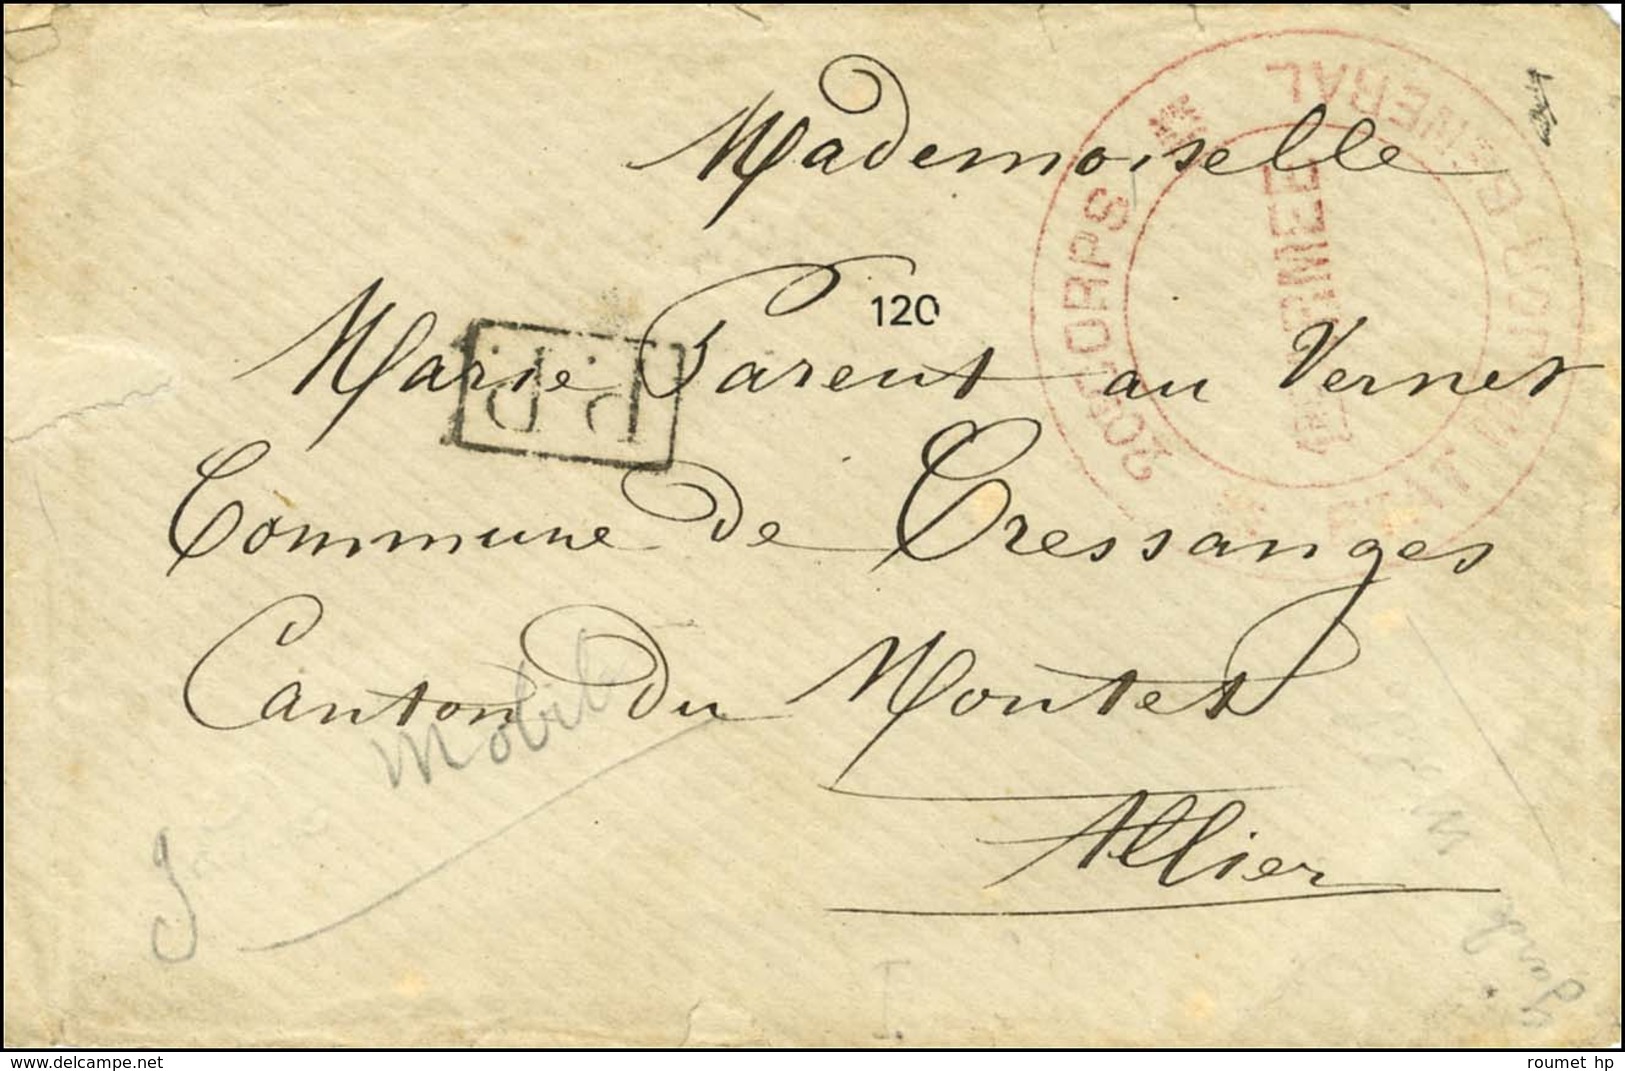 Mademoiselle
Marie Parent au Vernet
Commune de Cressanges
Canton du Montet
Allier
120
P.P.
20E CORPS
ETAT MAJOR GENERAL
1RE ARMEE
Mobile
delcampe.net
roumet hp